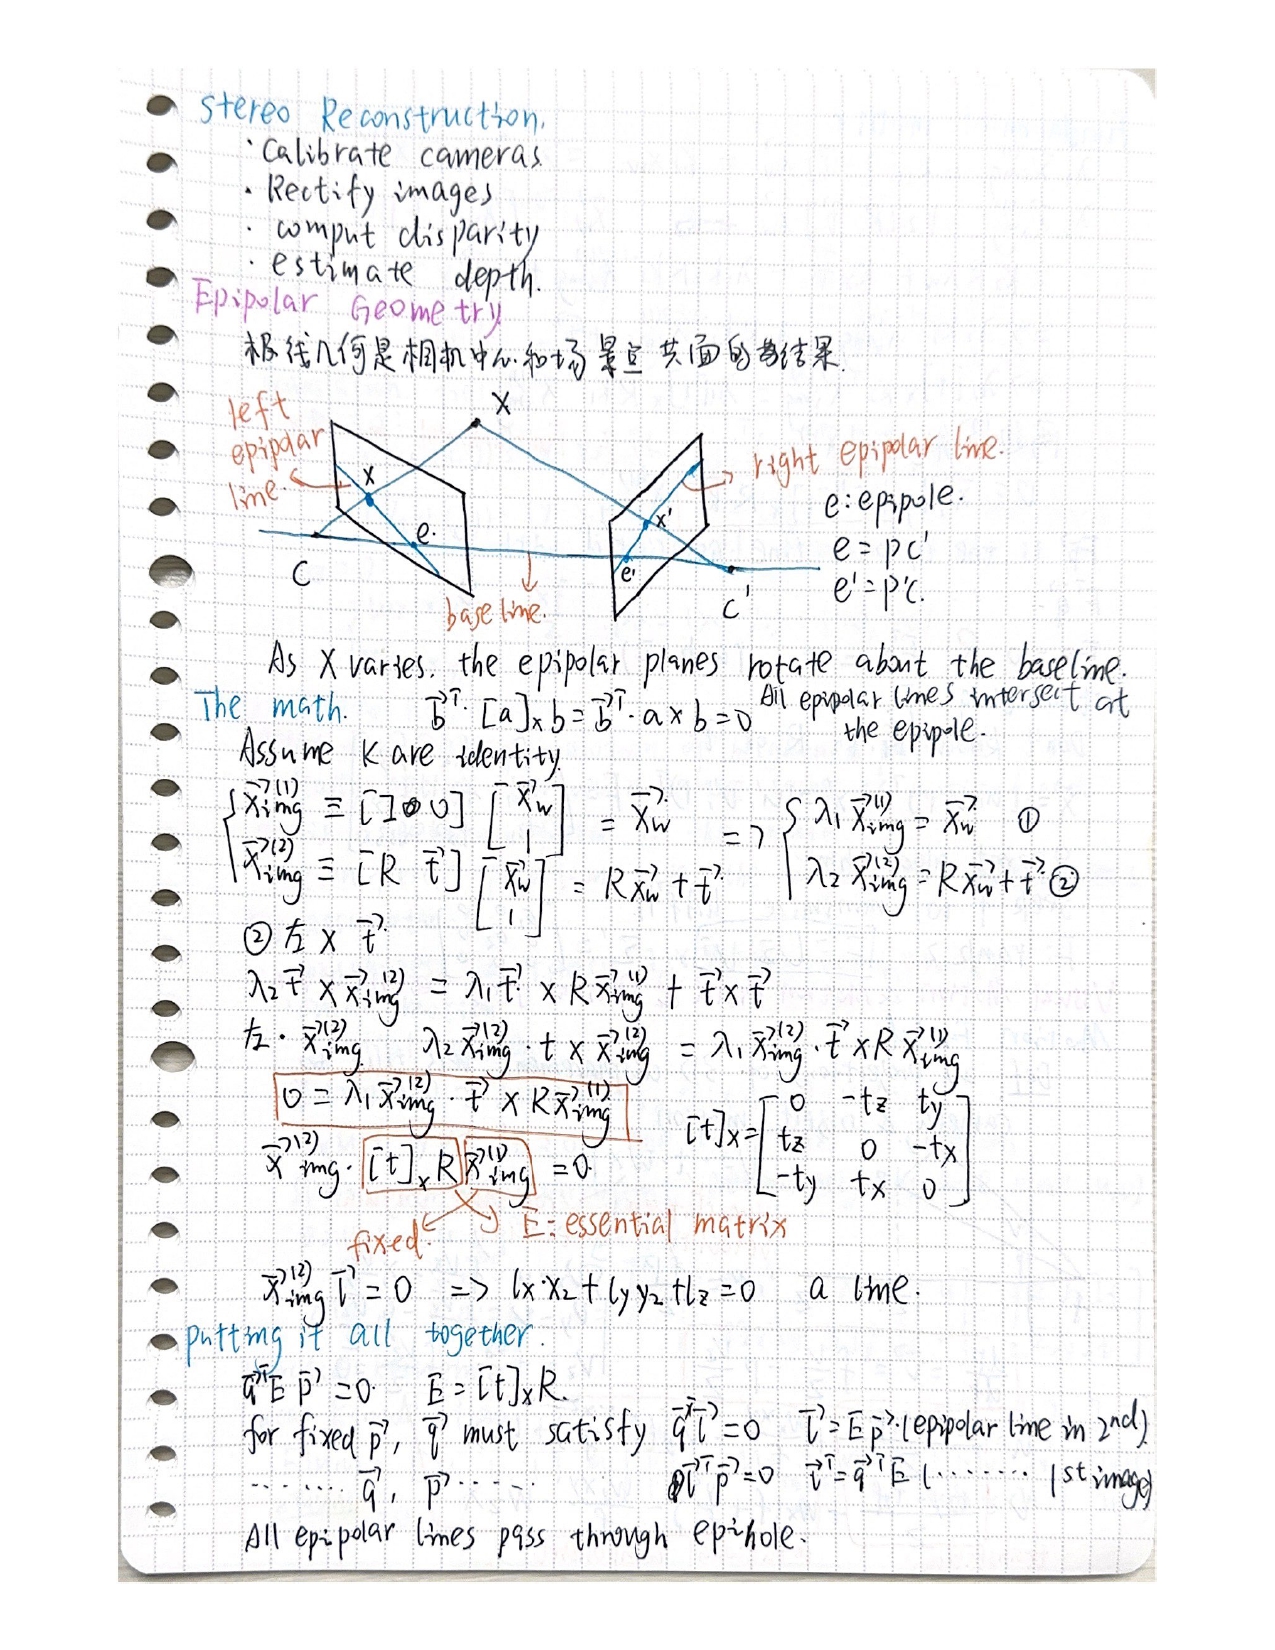 Stereo Reconstruction.
· Calibrate cameras
· Rectify images
· comput disparity
· estimate depth.
Epipolar Geometry
极线几何是相机中心和场景点共面的结果.
left epipolar line.
X
x
e.
C
baseline.
x'
e'
C'
right epipolar line.
e: epipole.
e = PC'
e' = P'C.
As X varies. the epipolar planes rotate about the baseline.
The math. b⃗ᵀ·[a]ₓb = b⃗ᵀ·a×b = 0 All epipolar lines intersect at
the epipole.
Assume K are identity.
{ x⃗img⁽¹⁾ ≡ [I 0] [x⃗w 1] = x⃗w => { λ₁ x⃗img⁽¹⁾ = x⃗w ①
x⃗img⁽²⁾ ≡ [R t⃗] [x⃗w 1] = Rx⃗w + t⃗ λ₂ x⃗img⁽²⁾ = Rx⃗w + t⃗ ②
② 左 × t⃗
λ₂ t⃗ × x⃗img⁽²⁾ = λ₁ t⃗ × R x⃗img⁽¹⁾ + t⃗ × t⃗
左 · x⃗img⁽²⁾ λ₂ x⃗img⁽²⁾ · t × x⃗img⁽²⁾ = λ₁ x⃗img⁽²⁾ · t⃗ × R x⃗img⁽¹⁾
0 = λ₁ x⃗img⁽²⁾ · t⃗ × R x⃗img⁽¹⁾
x⃗img⁽²⁾ · [t]ₓ R x⃗img⁽¹⁾ = 0
[t]x = [0 -tz ty
tz 0 -tx
-ty tx 0]
fixed. E: essential matrix
x⃗img⁽²⁾ l⃗ = 0 => lx·x₂ + ly y₂ + lz = 0 a line.
putting it all together.
q⃗ᵀ E p⃗ = 0. E = [t]ₓR.
for fixed p⃗, q⃗ must satisfy q⃗ᵀl⃗ = 0 l⃗ = E p⃗. (epipolar line in 2nd)
········ q⃗, p⃗ ······ l⃗ᵀ p⃗ = 0 l⃗ᵀ = q⃗ᵀ E (········ 1st image)
All epipolar lines pass through epihole.